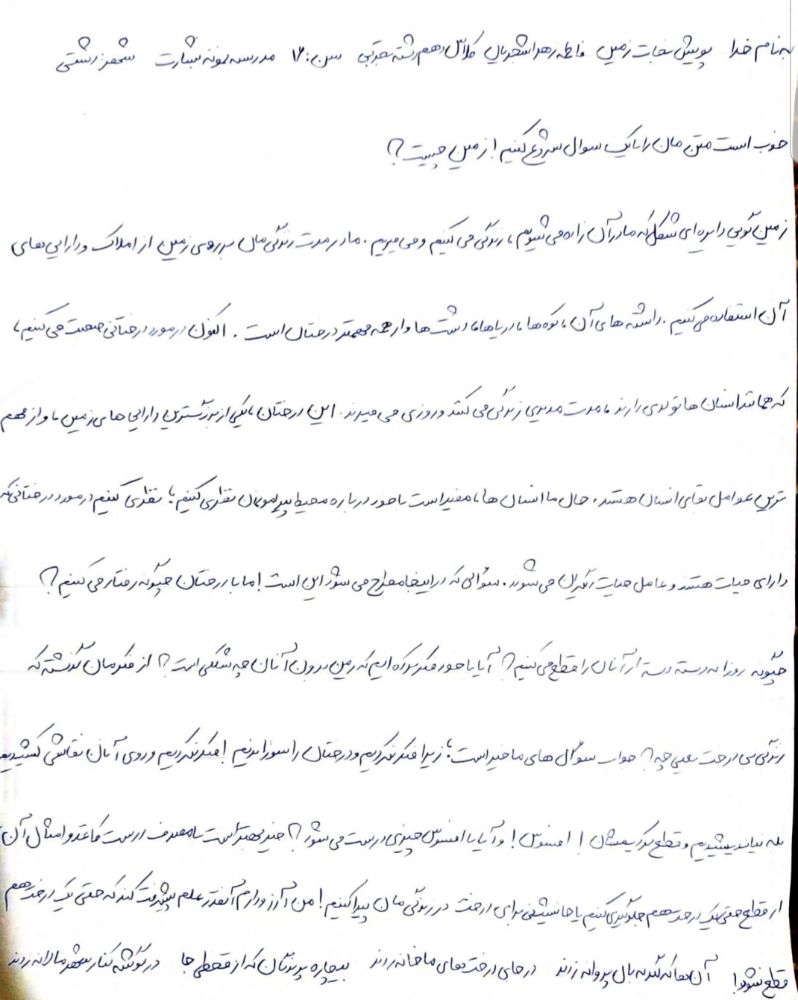 به نام خدا پویش نجات زمین فاطمه زهرا اسفندیاری کلاس دهم رشته تجربی سن: ۱۷ مدرسه نمونه بشارت شهر: رشتی
خوب است متن مان را با یک سوال شروع کنیم! زمین چیست؟
زمین گویی دایره ای شکل که ما در آن زاده می شویم، زندگی می کنیم و می میریم. ما در مدت زندگی مان بر روی زمین از املاک و دارایی های
آن استفاده می کنیم. داشته های آن، کوه ها، دریاها، دشت ها و از همه مهمتر درختان است. اکنون در مورد درختانی صحبت می کنیم،
که همانند انسان ها تولدی دارند، مدت مدیدی زندگی می کنند و روزی می میرند. این درختان، یکی از بزرگترین دارایی های زمین، و از مهم
ترین عوامل بقای انسان هستند. حال ما انسان ها، مفید است با خود درباره محیط پیرامونمان تفکری کنیم؛ تفکری کنیم در مورد درختانی که
دارای حیات هستند و عامل حیات دیگران می شوند. سؤالی که در اینجا مطرح می شود این است! ما با درختان چگونه رفتار می کنیم؟
چگونه روزانه دسته دسته از آنان را قطع می کنیم؟ آیا با خود فکر کرده ایم که زمین بدون آنان چه شکلی است؟ از فکرمان گذشته که
زندگی بی درخت یعنی چه؟ جواب سؤال های ما خیر است؛ زیرا فکر نکردیم و درختان را سوزاندیم! فکر نکردیم و روی آنان نقاشی کشیدیم
بله نیاندیشیدیم و قطع کردیمشان! افسوس! و آیا با افسوس چیزی درست می شود؟ چه بهتر است با مصرف درست کاغذ و امثال آن
از قطع حتی یک درخت هم جلوگیری کنیم یا جانشینی برای درخت در زندگی مان پیدا کنیم! من آرزو دارم آنقدر علم پیشرفت کند که حتی یک درخت هم
قطع نشود! آن ها که گنه بال پروانه زدند در جای درخت های ما خانه زدند بیچاره پرندگان که از قحطی جا در گوشه کنار شهر ما لانه زدند